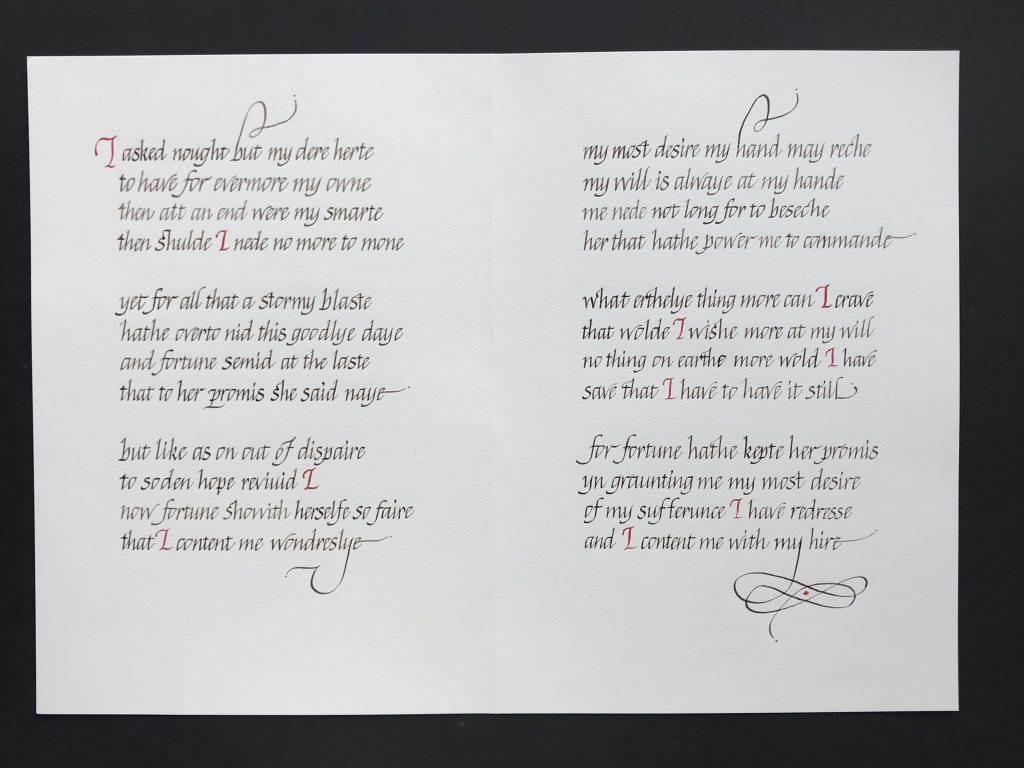 I asked nought but my dere herte
to have for evermore my owne
then att an end were my smarte
then shulde I nede no more to mone
yet for all that a stormy blaste
hathe overto nid this goodlye daye
and fortune semid at the laste
that to her promis she said naye
but like as on out of dispaire
to soden hope reviuid I
now fortune showith herselfe so faire
that I content me wondreslye
my most desire my hand may reche
my will is alwaye at my hande
me nede not long for to beseche
her that hathe power me to commande
what erthelye thing more can I crave
that wolde I wishe more at my will
no thing on earthe more wold I have
save that I have to have it still
for fortune hathe kepte her promis
yn graunting me my most desire
of my sufferunce I have redresse
and I content me with my hire